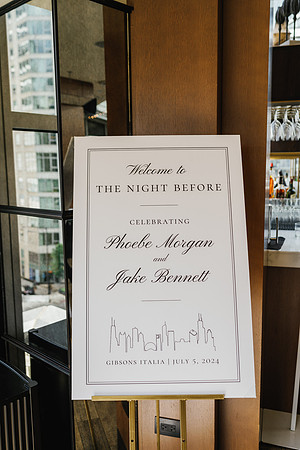 Welcome to
THE NIGHT BEFORE
CELEBRATING
Phoebe Morgan
and
Jake Bennett
GIBSONS ITALIA | JULY 5, 2024